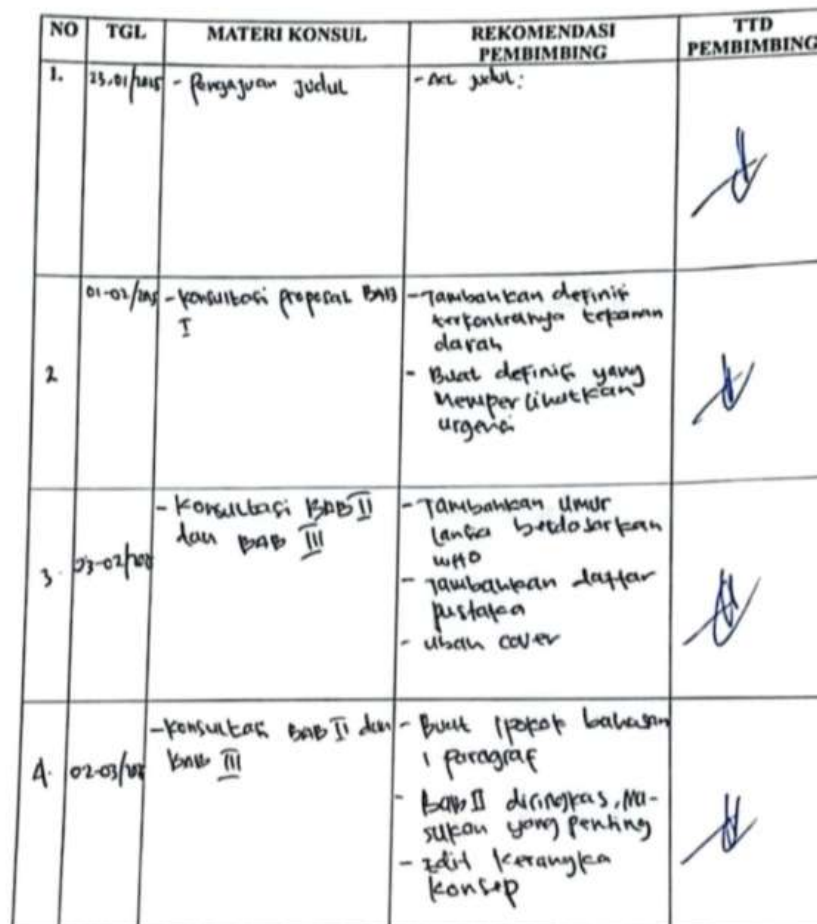 NO TGL MATERI KONSUL REKOMENDASI PEMBIMBING TTD PEMBIMBING
1. - Pengajuan judul - Acc judul:
2 - Konsultasi proposal BAB I
- Tambahkan definisi
terkontrolnya tekanan
darah
- Buat definisi yang
memperlihatkan
urgensi
3. - Konsultasi BAB II
dan BAB III
- Tambahkan Umur
lansia berdasarkan
WHO
- Tambahkan daftar
pustaka
- Ubah cover
4. - Konsultasi BAB II dan
BAB III
- Buat 1 pokok bahasan
1 paragraf
- Bab II diringkas, Ma-
sukan yang penting
- Edit Kerangka
Konsep